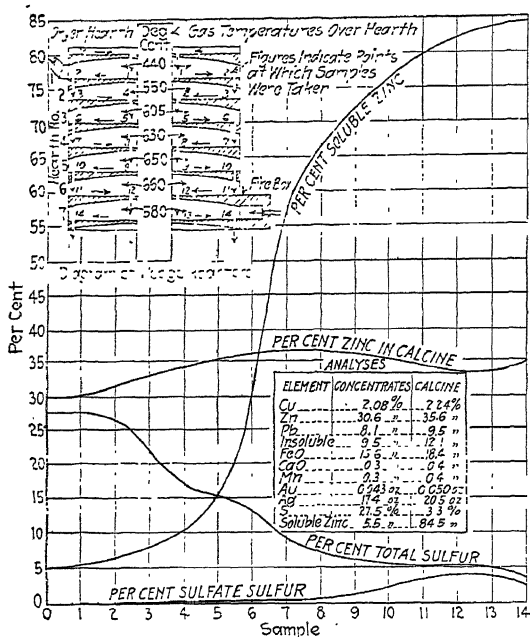 85
80
75
70
65
60
55
50
45
40
35
30
25
20
15
10
5
0
Per Cent
Dryer Hearth Deg. C Gas Temperatures Over Hearth
Cent
440
550
605
630
650
690
580
Figures Indicate Points
at Which Samples
Were Taker
Hearth No.
Fire Box
PER CENT SOLUBLE ZINC
PER CENT ZINC IN CALCINE
ANALYSES
ELEMENT CONCENTRATES CALCINE
Cu 2.08% 2.24%
Zn 30.6 " 35.6 "
Pb 8.1 " 9.5 "
Insoluble 9.5 " 12.1 "
FeO 15.6 " 18.4 "
CaO 0.3 " 0.4 "
Mn 0.3 " 0.4 "
Au 0.043 oz 0.050 oz
Ag 17.4 oz 20.5 oz
S 27.5 % 3.3 %
Soluble Zinc 5.5 " 84.5 "
PER CENT TOTAL SULFUR
PER CENT SULFATE SULFUR
0 1 2 3 4 5 6 7 8 9 10 11 12 13 14
Sample